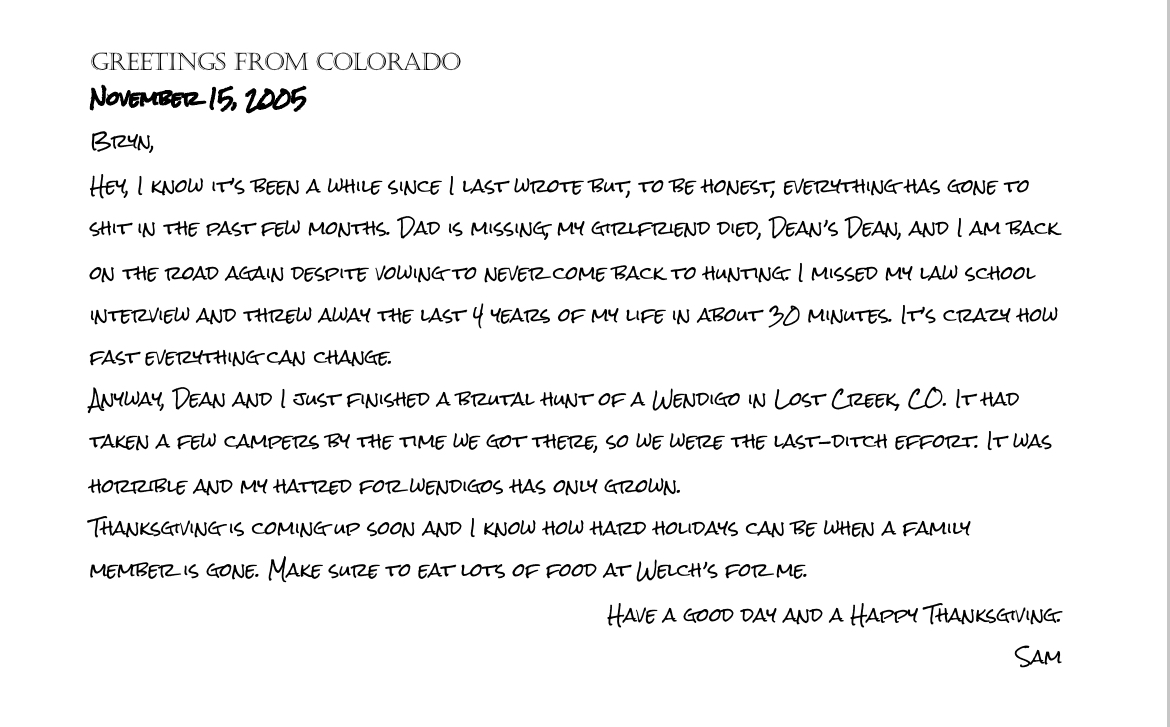 GREETINGS FROM COLORADO
NOVEMBER 15, 2005
BRYN,
HEY, I KNOW IT'S BEEN A WHILE SINCE I LAST WROTE BUT, TO BE HONEST, EVERYTHING HAS GONE TO
SHIT IN THE PAST FEW MONTHS. DAD IS MISSING, MY GIRLFRIEND DIED, DEAN'S DEAN, AND I AM BACK
ON THE ROAD AGAIN DESPITE VOWING TO NEVER COME BACK TO HUNTING. I MISSED MY LAW SCHOOL
INTERVIEW AND THREW AWAY THE LAST 4 YEARS OF MY LIFE IN ABOUT 30 MINUTES. IT'S CRAZY HOW
FAST EVERYTHING CAN CHANGE.
ANYWAY, DEAN AND I JUST FINISHED A BRUTAL HUNT OF A WENDIGO IN LOST CREEK, CO. IT HAD
TAKEN A FEW CAMPERS BY THE TIME WE GOT THERE, SO WE WERE THE LAST-DITCH EFFORT. IT WAS
HORRIBLE AND MY HATRED FOR WENDIGOS HAS ONLY GROWN.
THANKSGIVING IS COMING UP SOON AND I KNOW HOW HARD HOLIDAYS CAN BE WHEN A FAMILY
MEMBER IS GONE. MAKE SURE TO EAT LOTS OF FOOD AT WELCH'S FOR ME.
HAVE A GOOD DAY AND A HAPPY THANKSGIVING.
SAM